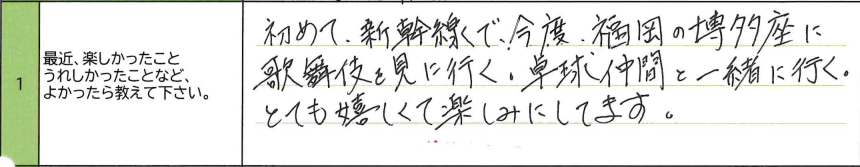 1
最近、楽しかったこと
うれしかったことなど、
よかったら教えて下さい。
初めて、新幹線で、今度、福岡の博多座に
歌舞伎を見に行く。卓球仲間と一緒に行く。
とても嬉しくて楽しみにしてます。